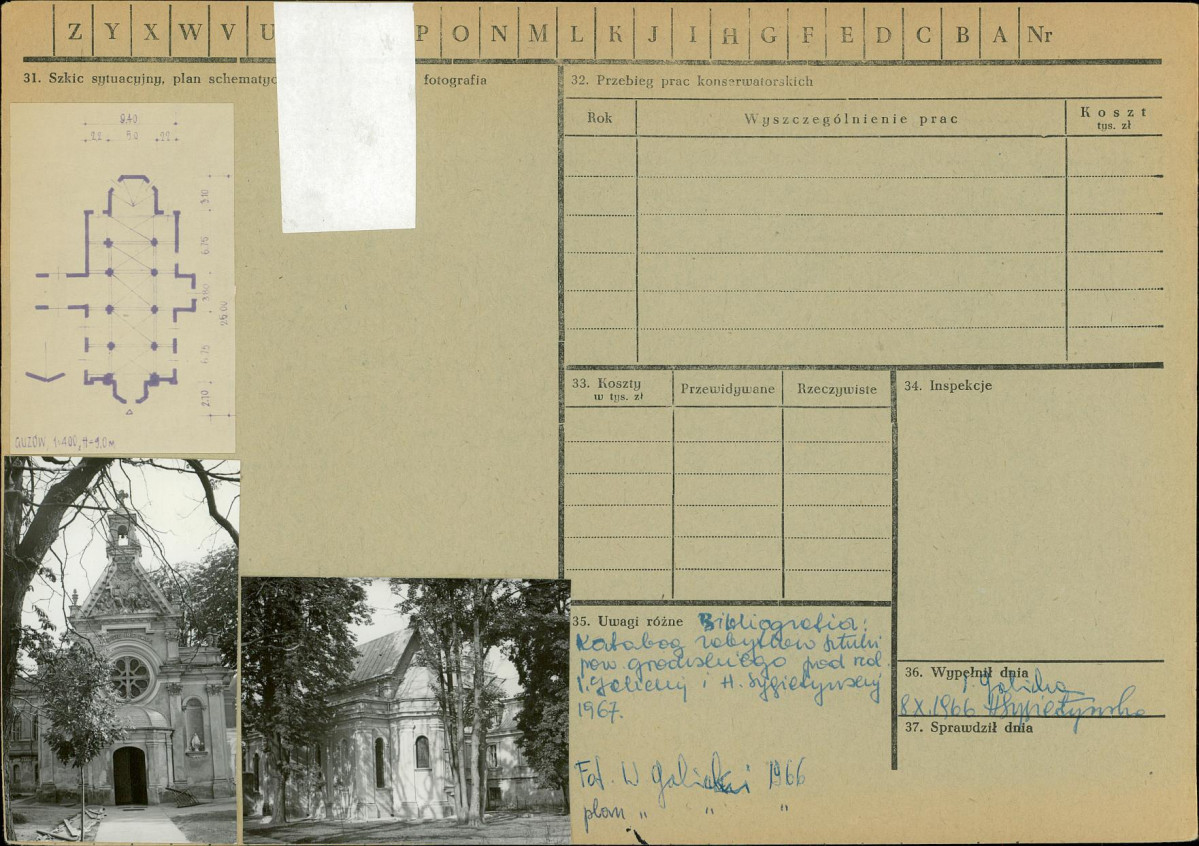 Z Y X W V U P O N M L K J I H G F E D C B A Nr
31. Szkic sytuacyjny, plan schematyc fotografia
9.40
2.10
GUZÓW, 1:400, H=9.0 m
32. Przebieg prac konserwatorskich
Rok Wyszczególnienie prac Koszt
tys. zł
33. Koszty Przewidywane Rzeczywiste
w tys. zł
34. Inspekcje
35. Uwagi różne Bibliografia:
Katalog zabytków sztuki
pow. grodziskiego pod red.
I. Galickiej i H. Sygietyńskiej
1967.
Fot. W Galicki 1966
plan " " "
36. Wypełnił dnia
I. Galicka
8 X. 1966 HSygietyńska
37. Sprawdził dnia